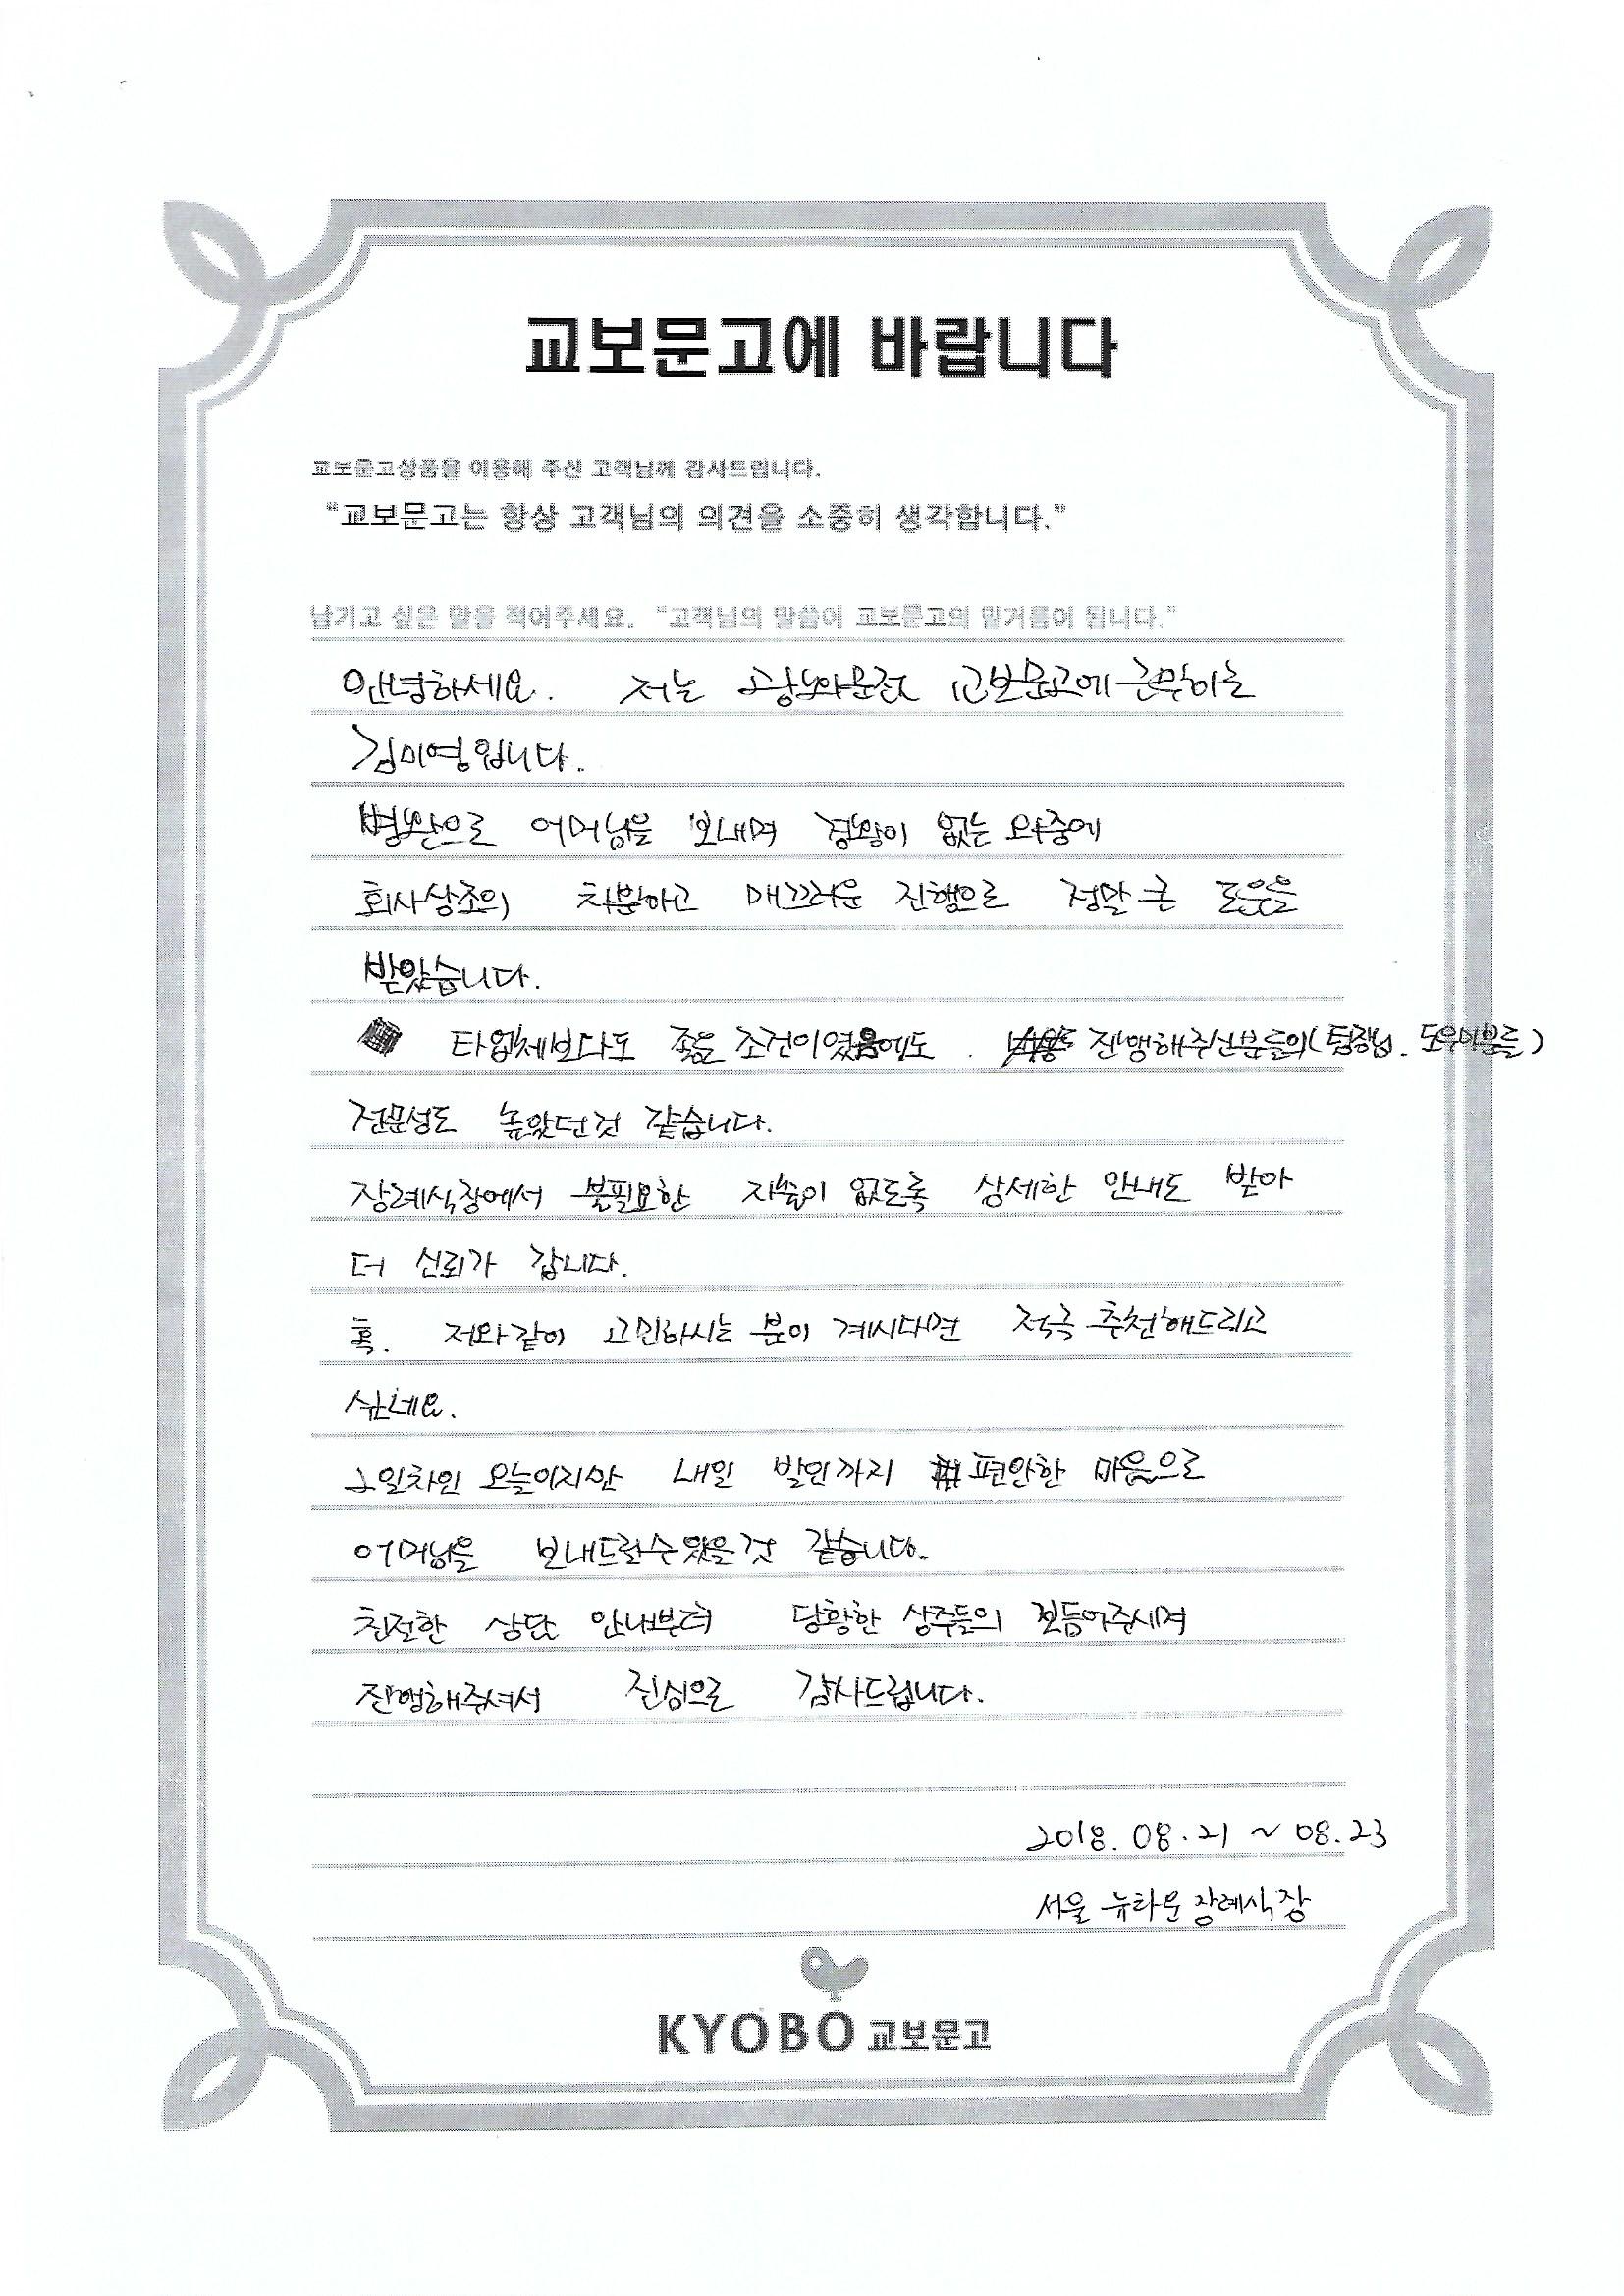 교보문고에 바랍니다
교보문고상품을 이용해 주신 고객님께 감사드립니다.
"교보문고는 항상 고객님의 의견을 소중히 생각합니다."
남기고 싶은 말을 적어주세요. "고객님의 말씀이 교보문고의 밑거름이 됩니다."
안녕하세요. 저는 광화문점 교보문고에 근무하는
김미영입니다.
병환으로 어머님을 보내며 경황이 없는 와중에
회사상조의 차분하고 매끄러운 진행으로 정말 큰 도움을
받았습니다.
타업체보다도 좋은 조건이었음에도. 진행해주신분들의(팀장님. 도우미분들)
전문성도 높았던것 같습니다.
장례식장에서 불필요한 지출이 없도록 상세한 안내도 받아
더 신뢰가 갑니다.
혹. 저와같이 고민하시는 분이 계시다면 적극 추천해드리고
싶네요.
2일차인 오늘이지만 내일 발인까지 편안한 마음으로
어머님을 보내드릴수있을것 같습니다.
친절한 상담 안내부터 당황한 상주들의 보듬어주시며
진행해주셔서 진심으로 감사드립니다.
2018. 08. 21 ~ 08. 23
서울 뉴타운 장례식장
KYOBO 교보문고